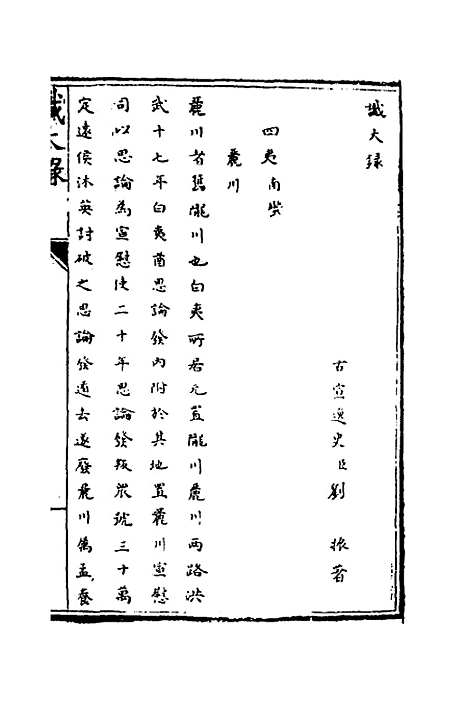 識大録
古宣逸史臣劉　振著
四夷南柴
麓川
麓川者舊隴川也白夷所居元置隴川麓川兩路洪
武十七年白夷酋思論發內附於其地置麓川宣慰
司以思論為宣慰使二十年思論發叛眾號三十萬
定遠侯沐英討破之思論發遠去遂廢麓川為孟養
識大録